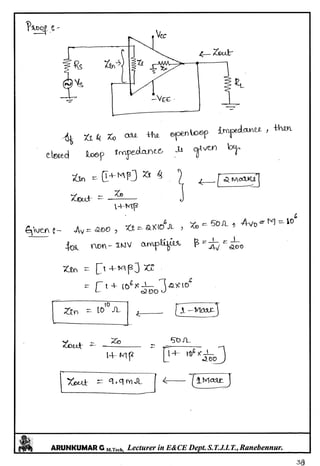 Proof :-
VCC
Zout
RS
Zin
Zi
Zo
VS
RL
-VEE
If Zi & Zo are the openloop impedance, then
closed loop impedance is given by.
Zin = [1+Mβ] Zi &
Zout = Zo / 1+Mβ
2 Marks
Given :- AV = 200, Zi = 2×10⁶Ω, Zo = 50Ω, AVO = M = 10⁶
for non-INV amplifier β = 1/AV = 1/200
Zin = [1+Mβ] Zi
= [1 + 10⁶ × 1/200] 2×10⁶
Zin = 10¹⁰ Ω
1-Mark
Zout = Zo / 1+Mβ = 50Ω / [1+ 10⁶ × 1/200]
Zout = 9.9mΩ
1Mark
ARUNKUMAR G M.Tech, Lecturer in E&CE Dept. S.T.J.I.T., Ranebennur.
39